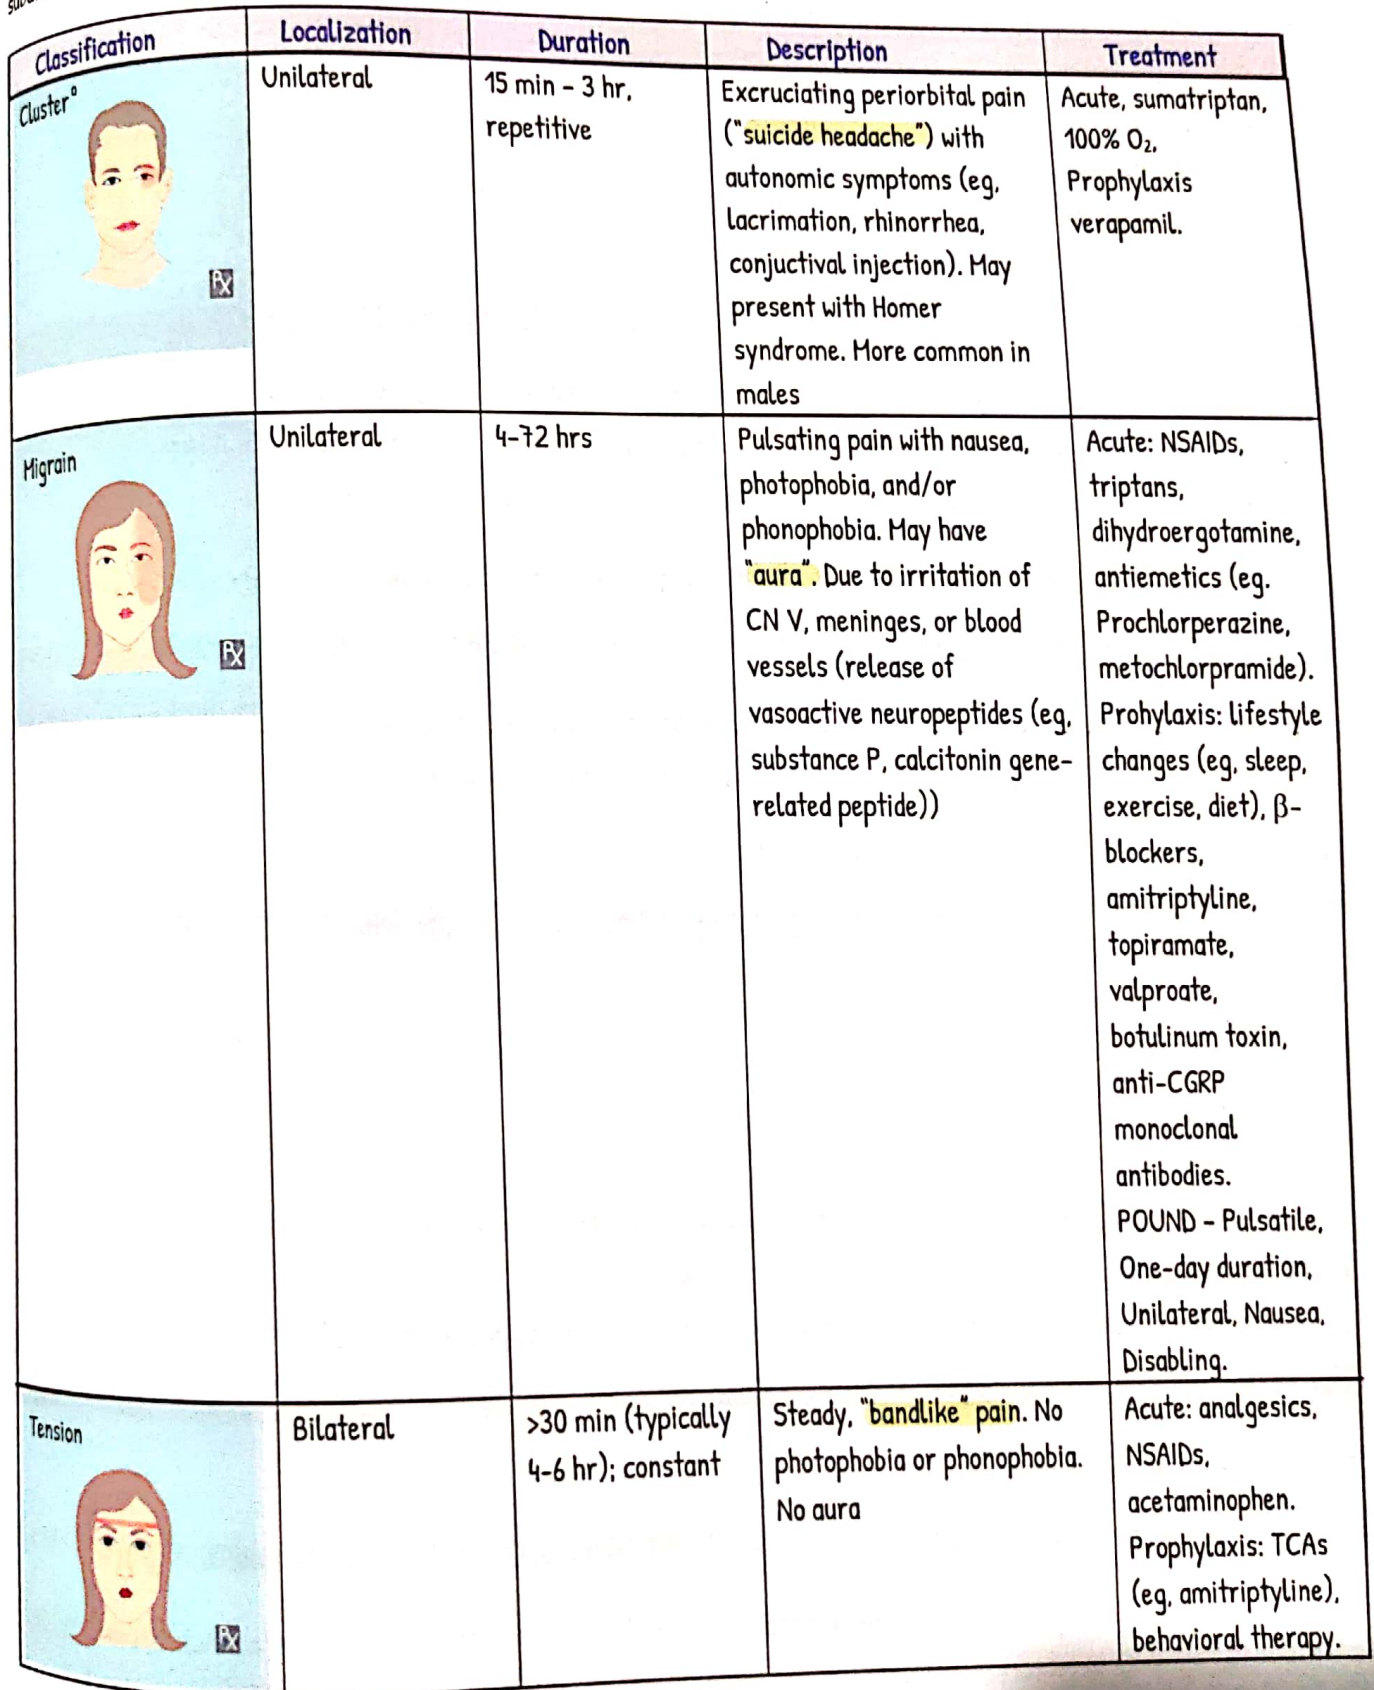 Classification
Localization
Duration
Description
Treatment
Cluster°
Unilateral
15 min – 3 hr,
repetitive
Excruciating periorbital pain
("suicide headache") with
autonomic symptoms (eg,
lacrimation, rhinorrhea,
conjuctival injection). May
present with Homer
syndrome. More common in
males
Acute, sumatriptan,
100% O₂,
Prophylaxis
verapamil.
Px
Migrain
Unilateral
4-72 hrs
Pulsating pain with nausea,
photophobia, and/or
phonophobia. May have
"aura". Due to irritation of
CN V, meninges, or blood
vessels (release of
vasoactive neuropeptides (eg,
substance P, calcitonin gene-
related peptide))
Acute: NSAIDs,
triptans,
dihydroergotamine,
antiemetics (eg.
Prochlorperazine,
metochlorpramide).
Prohylaxis: lifestyle
changes (eg, sleep,
exercise, diet), β-
blockers,
amitriptyline,
topiramate,
valproate,
botulinum toxin,
anti-CGRP
monoclonal
antibodies.
POUND – Pulsatile,
One-day duration,
Unilateral, Nausea,
Disabling.
Px
Tension
Bilateral
>30 min (typically
4-6 hr); constant
Steady, "bandlike" pain. No
photophobia or phonophobia.
No aura
Acute: analgesics,
NSAIDs,
acetaminophen.
Prophylaxis: TCAs
(eg, amitriptyline),
behavioral therapy.
Px